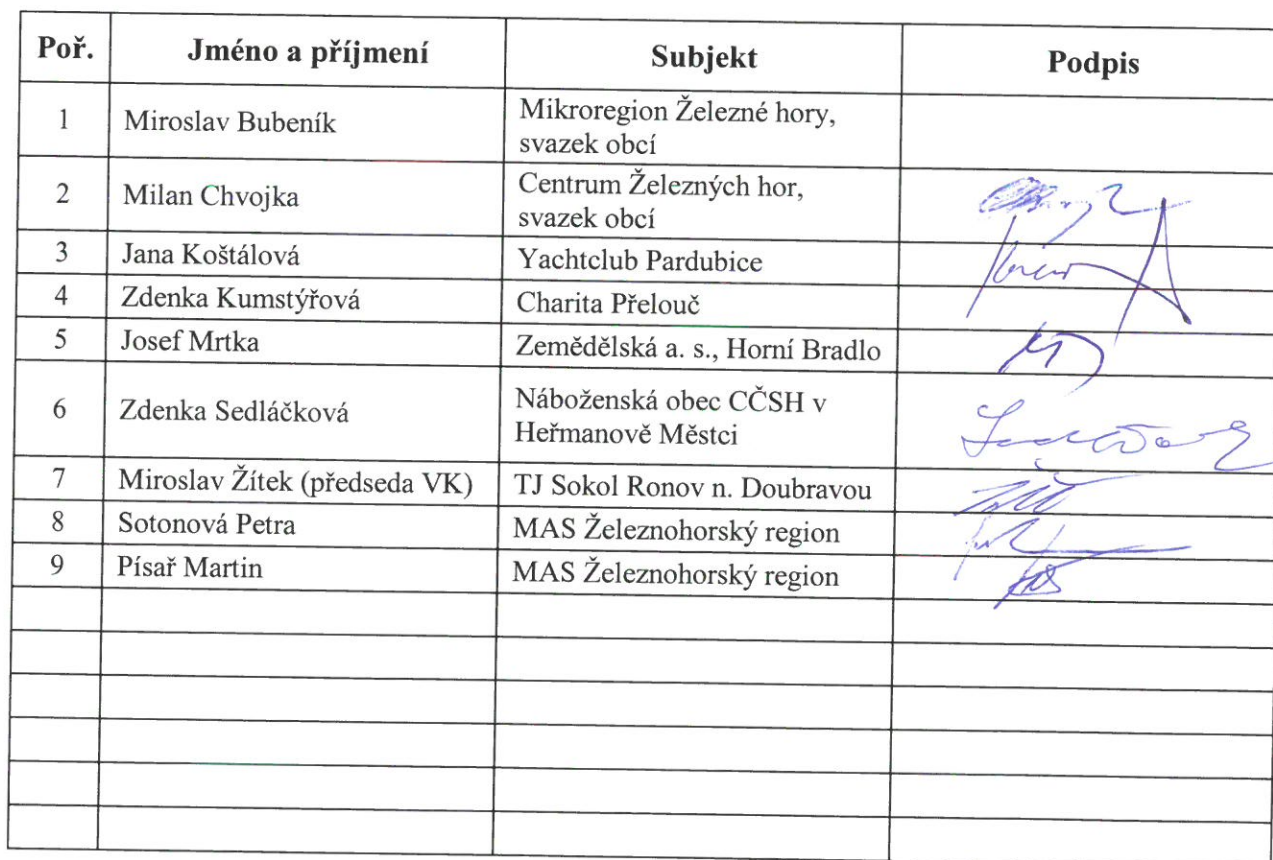 Poř. Jméno a příjmení Subjekt Podpis
1 Miroslav Bubeník Mikroregion Železné hory,
svazek obcí
2 Milan Chvojka Centrum Železných hor,
svazek obcí
3 Jana Koštálová Yachtclub Pardubice
4 Zdenka Kumstýřová Charita Přelouč
5 Josef Mrtka Zemědělská a. s., Horní Bradlo
6 Zdenka Sedláčková Náboženská obec CČSH v
Heřmanově Městci
7 Miroslav Žítek (předseda VK) TJ Sokol Ronov n. Doubravou
8 Sotonová Petra MAS Železnohorský region
9 Písař Martin MAS Železnohorský region